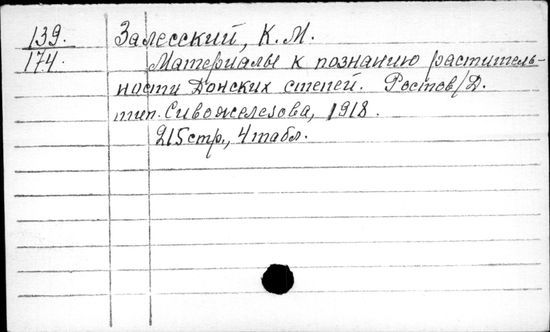 139. Залесский, К.М.
174. Материалы к познанию раститель-
ности Донских степей. Ростов/Д.
тип. Сивожелезова, 1918.
215 стр., 4 табл.